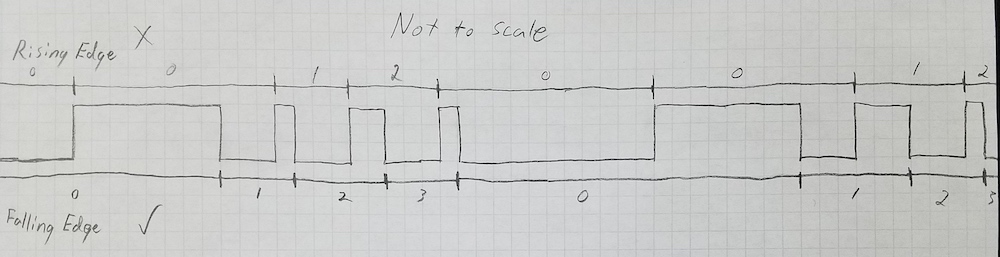 Not to scale
Rising Edge X
0 0 1 2 0 0 1 2
0 1 2 3 0 1 2 3
Falling Edge ✓